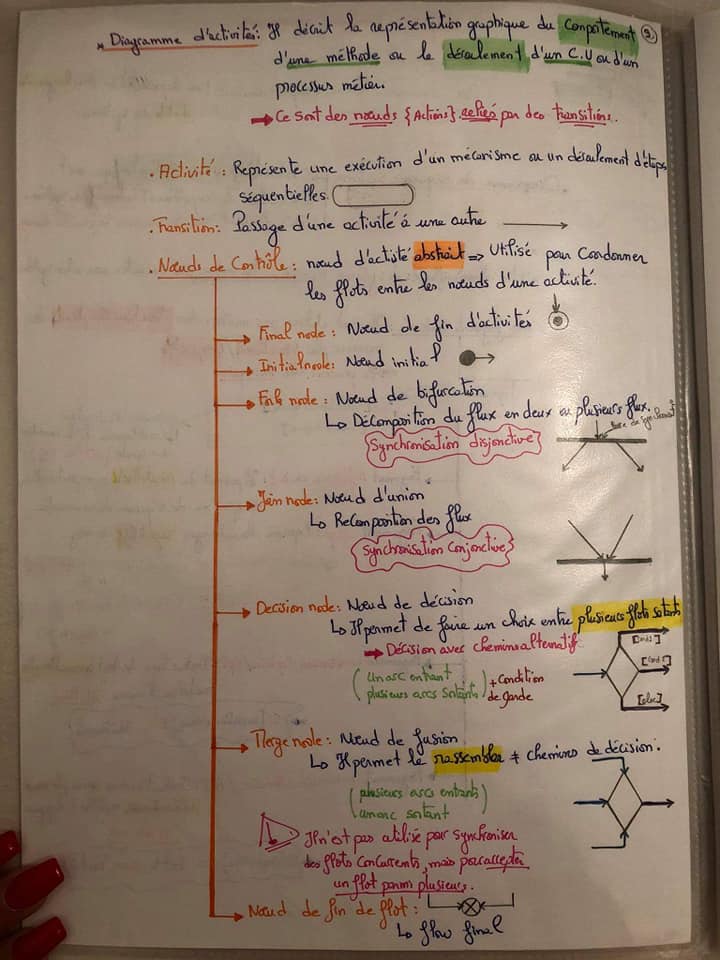 * Diagramme d'activités: Il décrit la représentation graphique du comportement
d'une méthode ou le déroulement d'un C.U ou d'un
processus métier.
➡ Ce sont des nœuds {Actions} reliés par des transitions.
. Activité : Représente une exécution d'un mécanisme ou un déroulement d'étapes
séquentielles.
. Transition: Passage d'une activité à une autre
. Nœuds de Contrôle : nœud d'activité abstrait => Utilisé pour Coordonner
les flots entre les nœuds d'une activité.
Final node : Nœud de fin d'activités
Initial node: Nœud initial
Fork node : Nœud de bifurcation
↳ Décomposition du flux en deux ou plusieurs flux.
Synchronisation disjonctive
Join node: Nœud d'union
↳ Recomposition des flux
Synchronisation Conjonctive
Decision node: Nœud de décision
↳ Il permet de faire un choix entre plusieurs flots sortants
➡ Décision avec chemins alternatif
(un arc entrant
plusieurs arcs sortants) + Condition
de garde
[cond 1]
[cond 2]
[else]
Merge node : Nœud de fusion
↳ Il permet le rassembler ≠ chemins de décision.
(plusieurs arcs entrants)
un arc sortant
Il n'est pas utilisé pour synchroniser
des flots concurrents, mais pour accepter
un flot parmi plusieurs.
Nœud de fin de flot :
↳ flow final